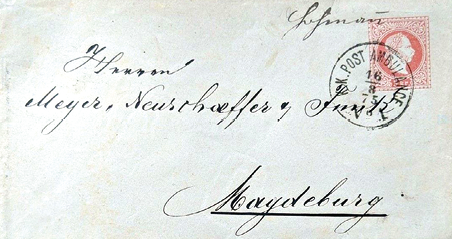 Herren
Meyer, Neuschaeffer &
Magdeburg
K. K. POST AMBULANCE
16
8
75